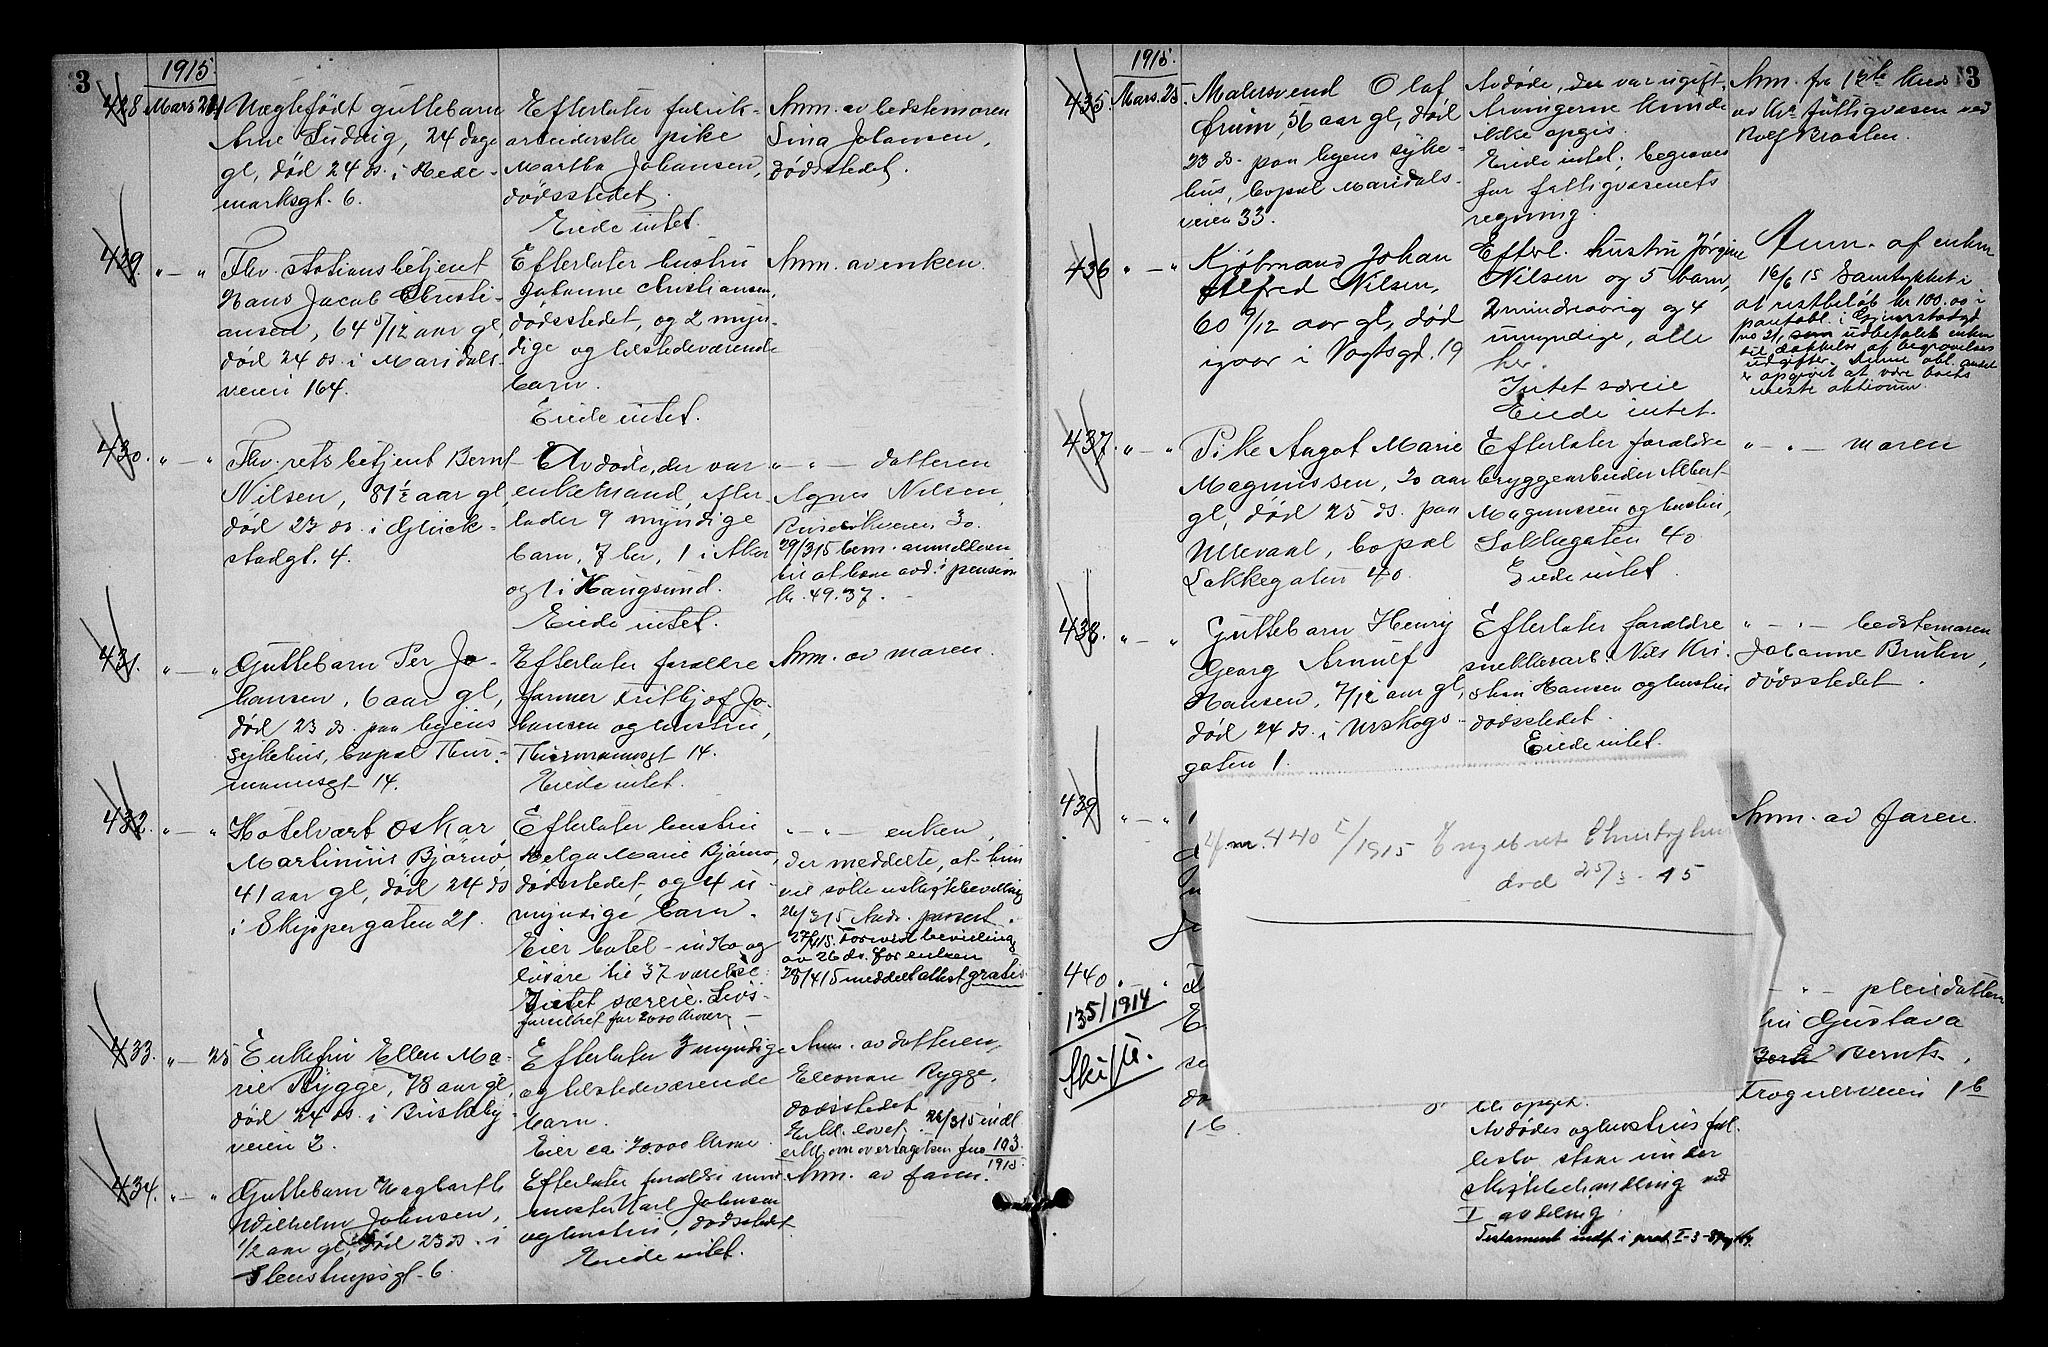 3
1915
428
Mars 24
Uægtefødt guttebarn
Arne Ludvig, 24 dage
gl, død 24 ds. i Hede-
marksgt. 6.
Efterlater fabrik-
arbeiderske pike
Martha Johansen,
dødsstedet.
Eiede intet.
Anm. av bedstemoren
Lina Johansen,
dødsstedet.
429.
" — "
Fhv. stationsbetjent
Hans Jacob Christi-
ansen, 64 5/12 aar gl,
død 24 ds. i Maridals-
veien 164.
Efterlater hustru
Johanne Christiansen,
dødsstedet, og 2 myn-
dige og tilstedeværende
barn.
Eiede intet.
Anm. av enken.
430.
" — "
Fhv. retsbetjent Bernt
Nilsen, 81 1/2 aar gl,
død 23 ds. i Glück-
stadgt. 4.
Avdøde, der var
enkemand, efter-
lader 9 myndige
barn, 7 her, 1 i Aker
og 1 i Haugsund.
Eiede intet.
" — " — datteren
Agnes Nilsen,
30.
29/3 15 bem. anmelderen
til at hæve avd. i pension
kr. 49.37.
431.
" — "
Guttebarn Per Jo-
hansen, 6 aar gl,
død 23 ds. paa byens
sykehus, bopæl Thur-
mannsgt 14.
Efterlater forældre
former Frithjof Jo-
hansen og hustru,
Thurmannsgt 14.
Eiede intet.
Anm. av moren.
432.
" — "
Hotelvært Oskar
Martinius Bjørnø,
41 aar gl, død 24 ds
i Skippergaten 21.
Efterlater hustru
Helga Marie Bjørnø,
dødsstedet og 4 u-
myndige barn.
Eier hotel - indbo og
løsøre til 37 værelser.
Intet særeie. Livs-
forsikret for 2000 kroner
" — " — enken,
der meddelte, at hun
vil søke uskiftebevilling
26/3 15
27/4 15. Forevist bevilling
av 26 ds. for enken
28/4 15 meddelt attest gratis
433.
" — 25
Enkefru Ellen Ma-
rie Rygge, 78 aar gl,
død 24 ds. i Briskeby-
veien 2.
Efterlater 3 myndige
og tilstedeværende
barn.
Eier ca. 70.000 kroner.
Anm. av datteren,
Eleonore Rygge,
dødsstedet.
Erkl. lovet. 26/3 15 indl.
erkl. om overtagelsen jno 103
1915.
434.
" — "
Guttebarn Hagbarth
Wilhelm Johnsen,
1/2 aar gl, død 23 ds. i
Stenstrupsgt. 6.
Efterlater forældre mur-
mester Karl Johnsen
og hustru, dødsstedet.
Eiede intet.
Anm. av faren.
3
1915.
435
Mars. 25.
Malersvend Olaf
56 aar gl, død
23 ds. paa byens syke-
hus, bopæl Maridals-
veien 33.
Avdøde, der var ugift,
Arvingerne kunde
ikke opgis.
Eiede intet; begraves
for fattigvæsenets
regning.
Anm. fra 13de kreds
av Kra fattigvæsen ved
Rolf Braaten.
436
" — "
Kjøbmand Johan
Alfred Nilsen,
60 9/12 aar gl, død
igaar i Vogtsgd. 19
Efterl. hustru Jørgine
Nilsen og 5 barn,
2 mindreaarig og 4
umyndige, alle
her.
Intet særeie
Eiede intet.
Anm. af enken
16/6 15 Samtykket i
at restbeløb kr 100.00 i
pantobl. i Gjøvestadgd
no 21, som udbetalt enken
til dækkelse af begravelses
udgifter. Denne obl.
er opgivet at være boets
eneste aktivum.
437.
" — "
Pike Aagot Marie
Magnussen, 20 aar
gl, død 25 ds. paa
Ullevaal, bopæl
Lakkegaten 40.
Efterlater forældre
bryggearbeider Albert
Magnussen og hustru,
Lakkegaten 40
Eiede intet.
" — " — moren
438.
" — "
Guttebarn Henry
Georg Arnulf
Hansen, 7/12 aar gl,
død 24 ds. i Urskogs-
gaten 1.
Efterlater forældre
snekkerarb. Nils Kri-
stian Hansen og hustru
dødsstedet.
Eiede intet.
" — " — bedstemoren
Johanne Bruhn,
dødsstedet.
439
" — "
Anm. av faren.
440 5/1915 Engebret Christophersen
død 25/3 - 15
440
" — "
135/1914
Skifte.
1b.
ble opgit.
Avdødes og hustrus fæl-
lesbo staar under
skiftebehandling ved
I avdeling.
Testament indf. i prot. I-3-
" — " pleiedatteren
fru Gustava
Bernts,
Frognerveien 1b